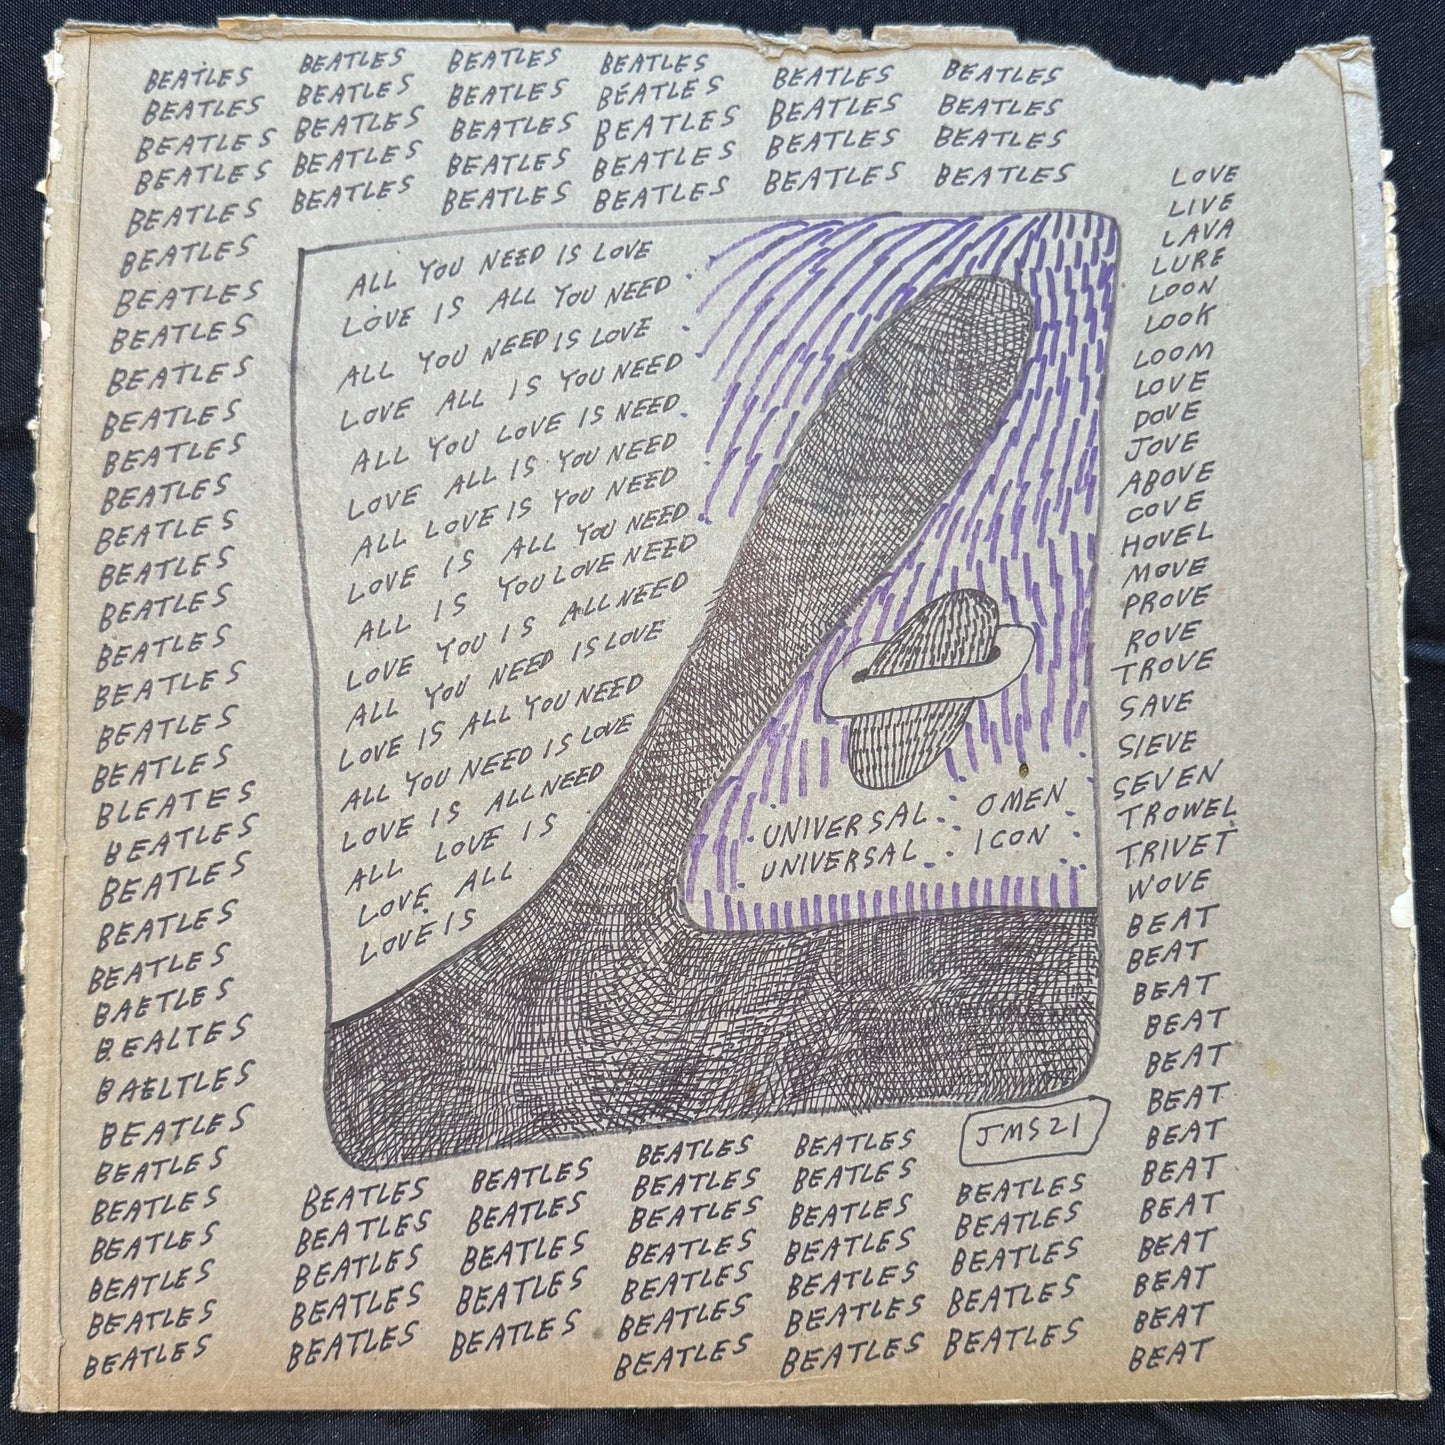 BEATLES
BEATLES
BEATLES
BEATLES
BEATLES
BEATLES
BEATLES
BEATLES
BEATLES
BEATLES
BEATLES
BEATLES
BEATLES
BEATLES
BEATLES
BEATLES
BEATLES
BEATLES
BEATLES
BLEATES
BEATLES
BEATLES
BEATLES
BEATLES
BAETLES
BEALTES
BAELTLES
BEATLES
BEATLES
BEATLES
BEATLES
BEATLES
BEATLES
BEATLES
BEATLES
BEATLES
BEATLES
BEATLES
BEATLES
BEATLES
BEATLES
BEATLES
BEATLES
BEATLES
BEATLES
BEATLES
BEATLES
BEATLES
BEATLES
BEATLES
BEATLES
BEATLES
BEATLES
BEATLES
BEATLES
BEATLES
BEATLES
ALL YOU NEED IS LOVE
LOVE IS ALL YOU NEED
ALL YOU NEED IS LOVE
LOVE ALL IS YOU NEED
ALL YOU LOVE IS NEED
LOVE ALL IS YOU NEED
ALL LOVE IS YOU NEED
LOVE IS ALL YOU NEED
ALL IS YOU LOVE NEED
LOVE YOU IS ALL NEED
ALL YOU NEED IS LOVE
LOVE IS ALL YOU NEED
ALL YOU NEED IS LOVE
LOVE IS ALL NEED
ALL LOVE IS
LOVE ALL
LOVE IS
UNIVERSAL OMEN
UNIVERSAL ICON
JMS21
BEATLES
BEATLES
BEATLES
BEATLES
BEATLES
BEATLES
BEATLES
BEATLES
BEATLES
BEATLES
BEATLES
BEATLES
BEATLES
BEATLES
BEATLES
BEATLES
BEATLES
BEATLES
BEATLES
BEATLES
BEATLES
BEATLES
BEATLES
BEATLES
BEATLES
BEATLES
BEATLES
BEATLES
BEATLES
LOVE
LIVE
LAVA
LURE
LOON
LOOK
LOOM
LOVE
DOVE
JOVE
ABOVE
COVE
HOVEL
MOVE
PROVE
ROVE
TROVE
SAVE
SIEVE
SEVEN
TROWEL
TRIVET
WOVE
BEAT
BEAT
BEAT
BEAT
BEAT
BEAT
BEAT
BEAT
BEAT
BEAT
BEAT
BEAT
BEAT